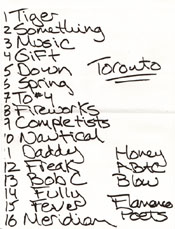 1 Tiger
2 Something
3 Music
4 Gift
5 Down
6 Spring
7 To #4
8 Fireworks
9 Completists
10 Nautical
11 Daddy
12 Freak
13 Bob C
14 Fully
15 Fever
16 Meridian
Toronto
Honey
ABTC
Blow
Poets